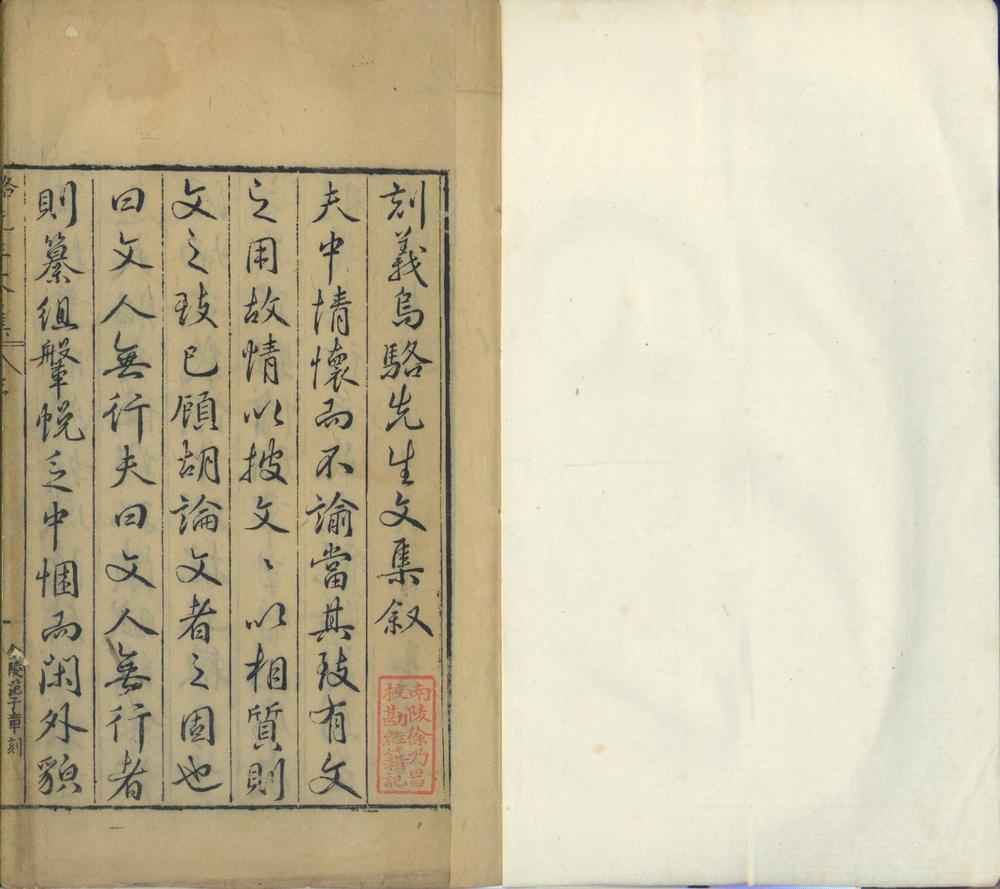 刻義烏駱先生文集叙
夫中情懷而不諭當其致有文
之用故情以披文〻以相質則
文之致已顧胡論文者之固也
曰文人無行夫曰文人無行者
則纂組鞶帨之中悃而闲外貌
南陵徐乃昌
校勘經籍記
金陵範子章刻